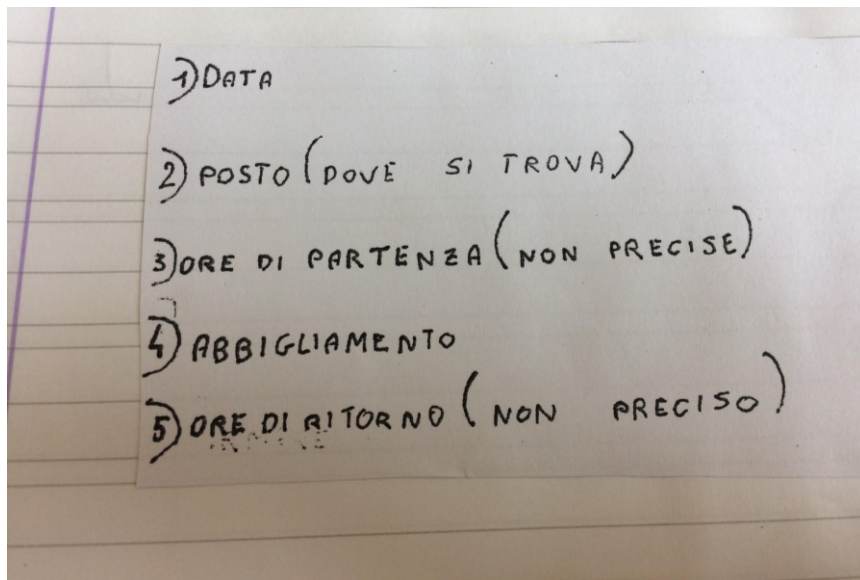 1) DATA
2) POSTO (DOVE SI TROVA)
3) ORE DI PARTENZA (NON PRECISE)
4) ABBIGLIAMENTO
5) ORE DI RITORNO (NON PRECISO)